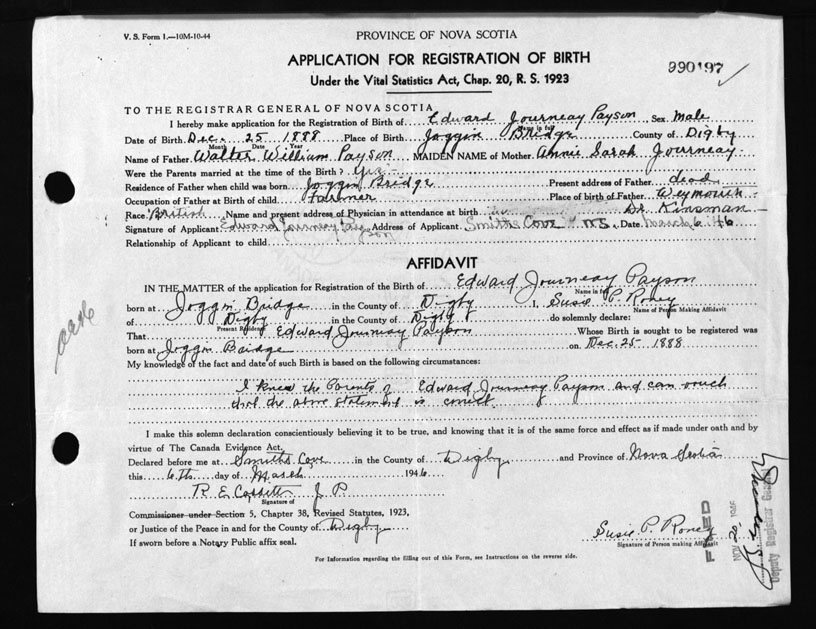 V. S. Form 1.—10M-10-44
PROVINCE OF NOVA SCOTIA
APPLICATION FOR REGISTRATION OF BIRTH
990197
Under the Vital Statistics Act, Chap. 20, R. S. 1923
TO THE REGISTRAR GENERAL OF NOVA SCOTIA
I hereby make application for the Registration of Birth of Edward Journeay Payson Sex Male
Name in full
Date of Birth Dec. 25 1888 Place of Birth Joggin Bridge County of Digby
Month Date Year
Name of Father Walter William Payson MAIDEN NAME of Mother Annie Sarah Journeay
Were the Parents married at the time of the Birth? Yes
Residence of Father when child was born Joggin Bridge Present address of Father dead
Occupation of Father at Birth of child Farmer Place of birth of Father Weymouth
Race British Name and present address of Physician in attendance at birth Dr. Kinsman
Signature of Applicant Edward Journeay Payson Address of Applicant Smiths Cove N.S. Date March 6 46
Relationship of Applicant to child
AFFIDAVIT
IN THE MATTER of the application for Registration of the Birth of Edward Journeay Payson
Name in full
born at Joggin Bridge in the County of Digby I, Susie P. Roney
Name of Person Making Affidavit
of Digby in the County of Digby do solemnly declare:
Present Residence
That Edward Journeay Payson Whose Birth is sought to be registered was
born at Joggin Bridge on Dec. 25 1888
My knowledge of the fact and date of such Birth is based on the following circumstances:
I knew the Parents of Edward Journeay Payson and can vouch
that the above statement is correct.
I make this solemn declaration conscientiously believing it to be true, and knowing that it is of the same force and effect as if made under oath and by
virtue of The Canada Evidence Act.
Declared before me at Smiths Cove in the County of Digby and Province of Nova Scotia
this 6th day of March 1946
R. E. Cossitt J. P.
Signature of
Commissioner under Section 5, Chapter 38, Revised Statutes, 1923,
or Justice of the Peace in and for the County of Digby
If sworn before a Notary Public affix seal.
Susie P. Roney
Signature of Person making Affidavit
For Information regarding the filling out of this Form, see Instructions on the reverse side.
FILED
NOV 20 1946
Deputy Registrar General